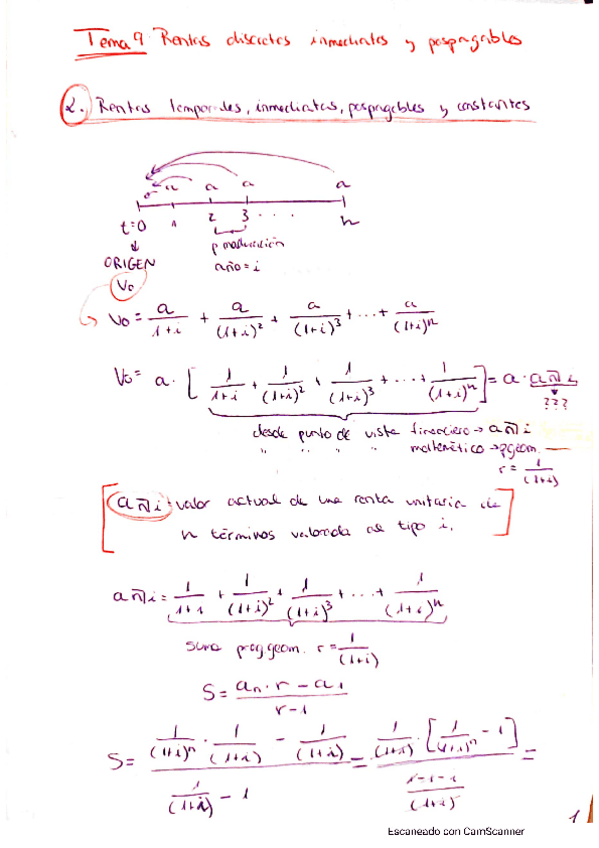 Tema 9 Rentas discretas inmediatas y pospagables
2. Rentas temporales, inmediatas, pospagables y constantes
a a a a
t=0 1 2 3 .... n
ORIGEN
p maduración
año = i
V₀
V₀ = a/(1+i) + a/(1+i)² + a/(1+i)³ + ... + a/(1+i)ⁿ
V₀ = a · [1/(1+i) + 1/(1+i)² + 1/(1+i)³ + ... + 1/(1+i)ⁿ] = a · a n̅| i
???
desde punto de vista financiero → a n̅| i
" " " " matemático → pgeom.
r = 1/(1+i)
[a n̅| i: valor actual de una renta unitaria de
n términos valorada al tipo i.]
a n̅| i = 1/(1+i) + 1/(1+i)² + 1/(1+i)³ + ... + 1/(1+i)ⁿ
suma prog geom. r = 1/(1+i)
S = (aₙ · r − a₁)/(r − 1)
S = (1/(1+i)ⁿ · 1/(1+i) − 1/(1+i))/(1/(1+i) − 1) = (1/(1+i) · [1/(1+i)ⁿ − 1])/((1−1−i)/(1+i)) =
1
Escaneado con CamScanner